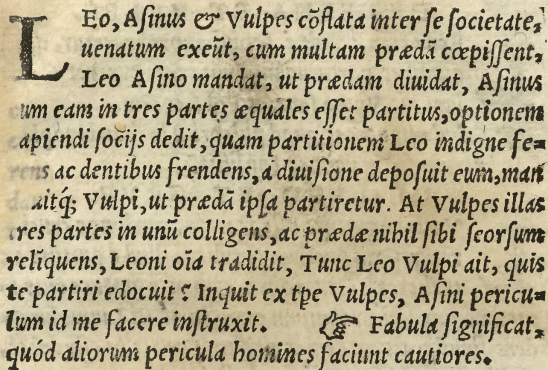 LEo, Aſinus & Vulpes cõflata inter ſe ſocietate,
uenatum exeũt, cum multam prædã cœpiſſent,
Leo Aſino mandat, ut prædam diuidat, Aſinus
cum eam in tres partes æquales eſſet partitus, optionem
capiendi ſocijs dedit, quam partitionem Leo indigne fe=
rens ac dentibus frendens, à diuiſione depoſuit eum, man
Vulpi, ut prædã ipſa partiretur. At Vulpes illas
tres partes in unũ colligens, ac prædæ nihil ſibi ſeorſum
relĩquens, Leoni oĩa tradidit, Tunc Leo Vulpi ait, quis
te partiri edocuit? Inquit ex tp̃e Vulpes, Aſini pericu=
lum id me facere inſtruxit. ☞ Fabula ſignificat,
quód aliorum pericula homines faciunt cautiores.